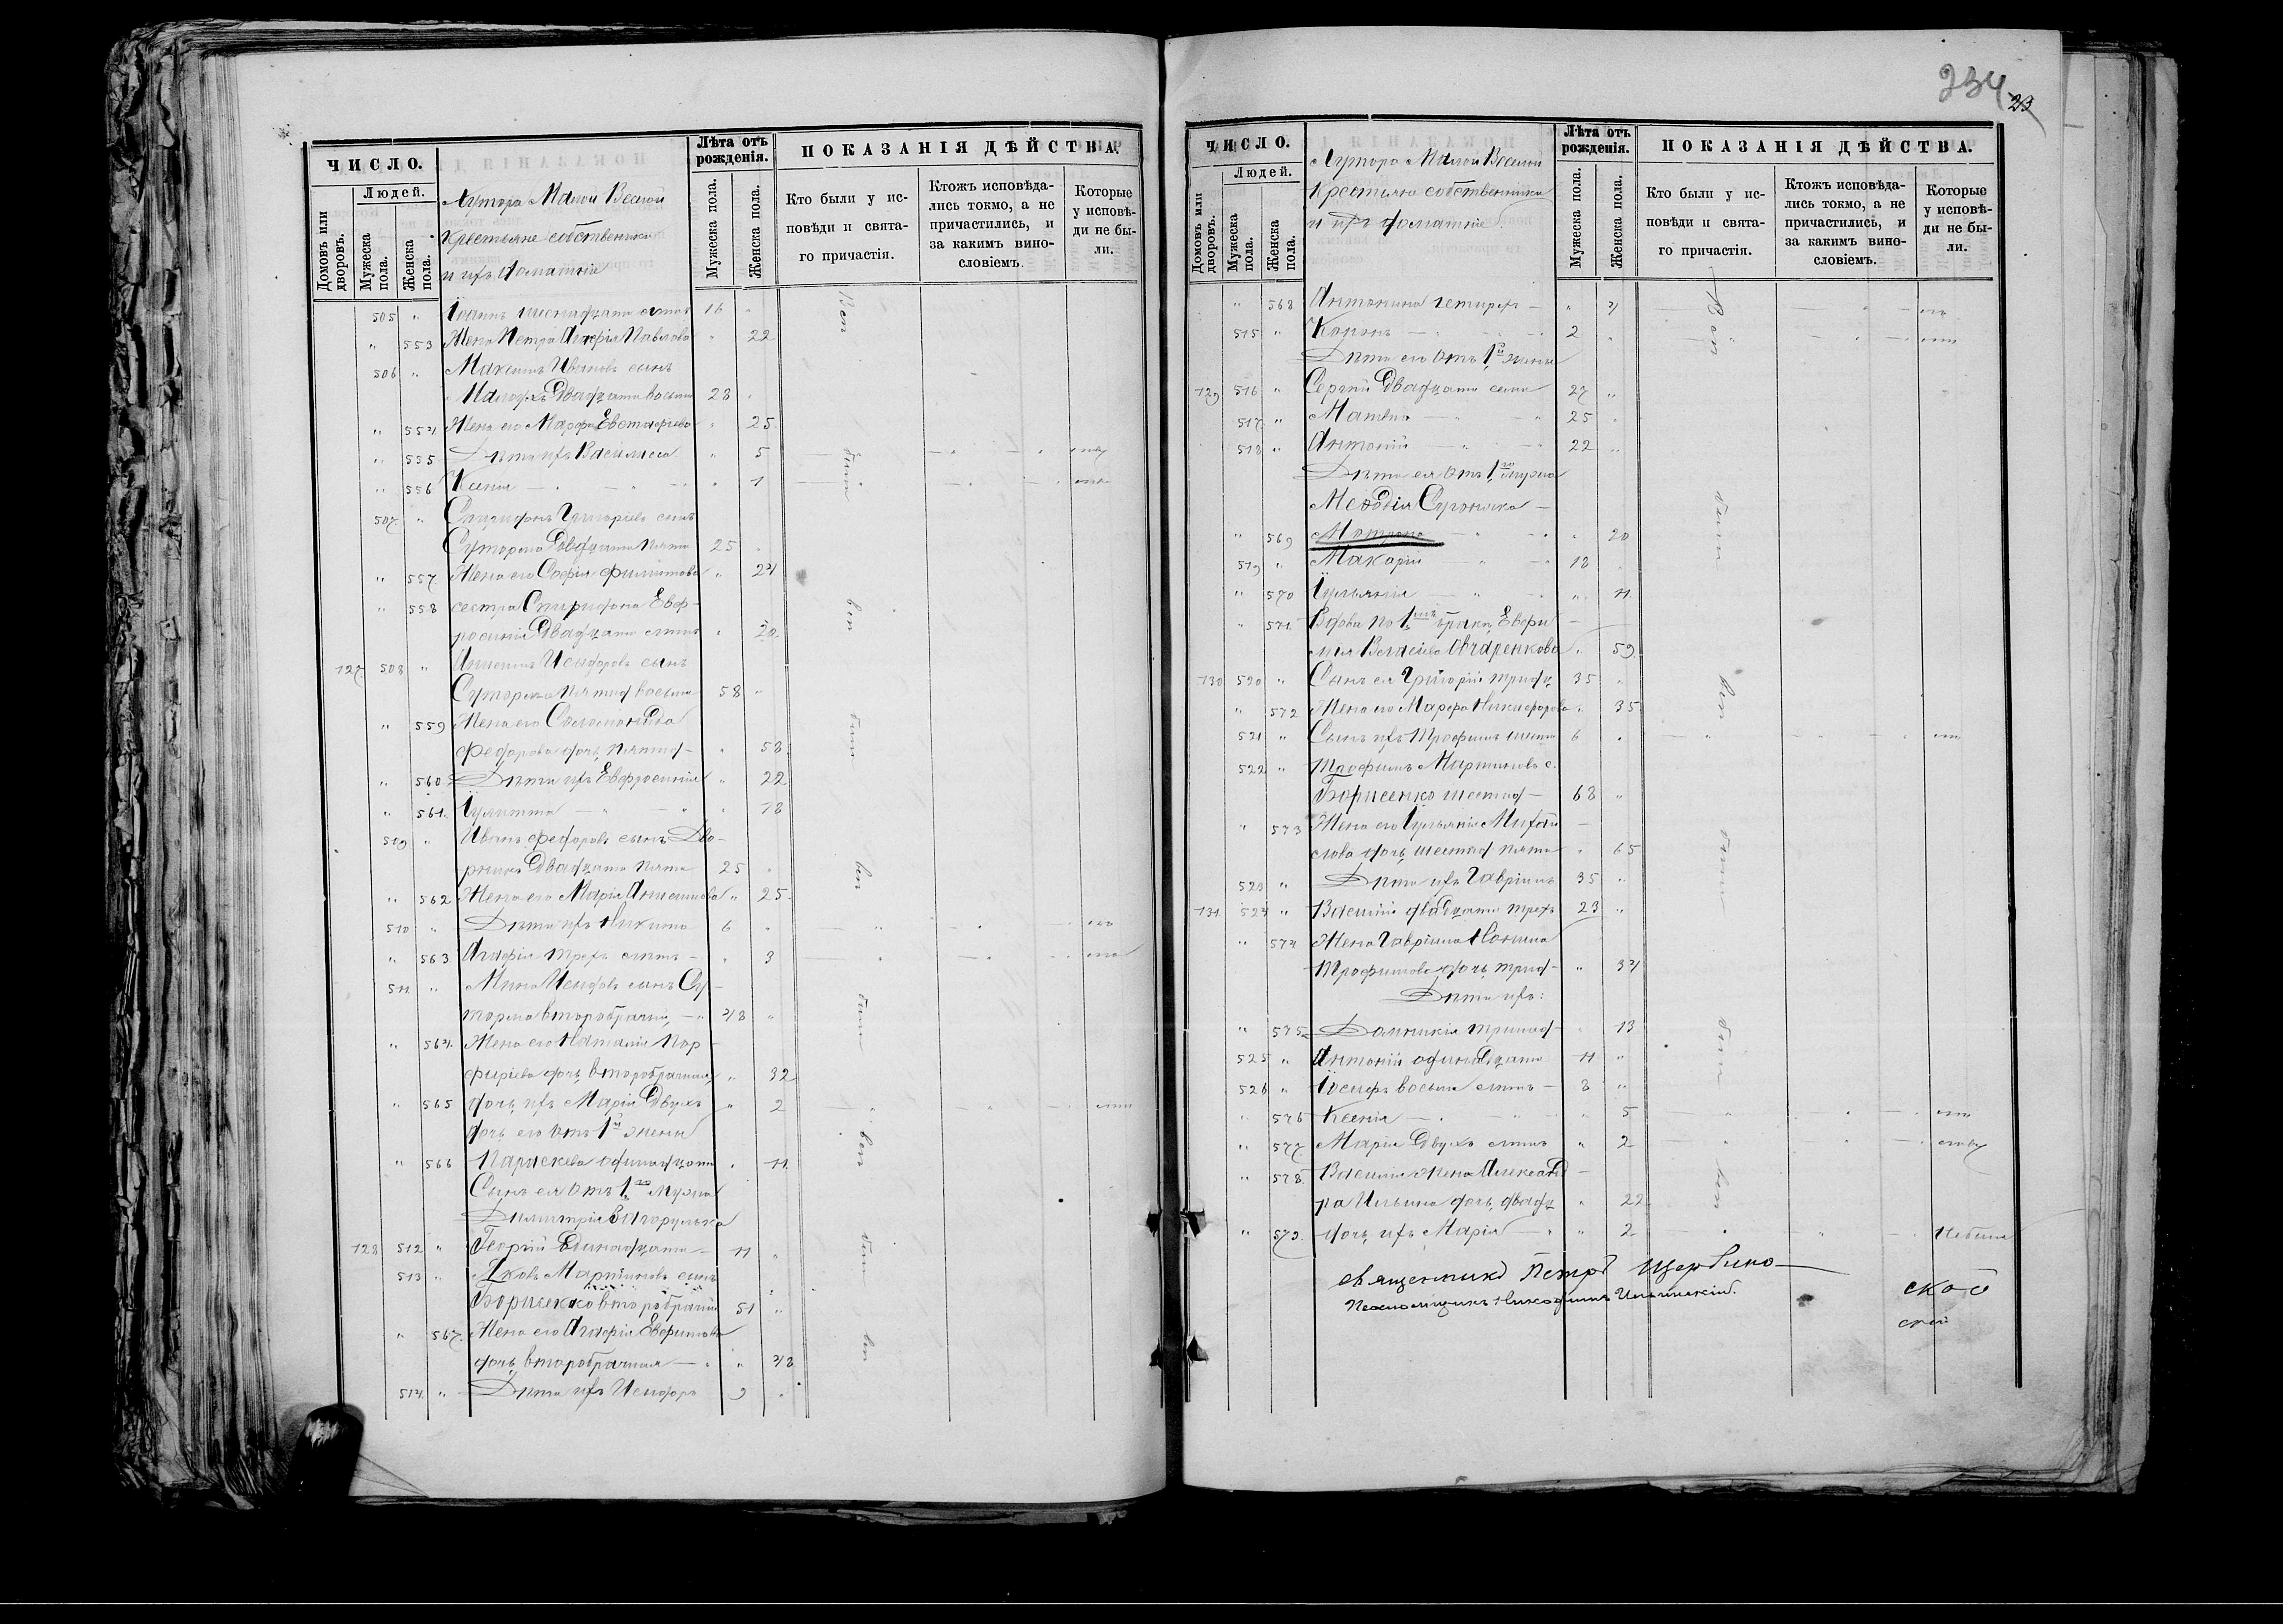 ЧИСЛО.
Людей.
Домовъ или дворовъ.
Мужеска пола.
Женска пола.
Хутора Малой Веселой
Крестьяне собственники
и ихъ домашніе
Лѣта отъ рожденія.
Мужеска пола.
Женска пола.
ПОКАЗАНІЯ ДѢЙСТВА.
Кто были у исповѣди и святаго причастія.
Ктожъ исповѣдались токмо, а не причастились, и за какимъ винословіемъ.
Которые у исповѣди не были.
505 " Іоаннъ шестнадцати лѣтъ 16 "
" 553 Жена Петра Агафія Павлова " 22
506 " Максимъ Ивановъ сынъ
Двадцати восьми 28 "
" 554 Жена его Марфа Евстафіева " 25
" 555 Дѣти ихъ Василиса " 5
" 556 Ксенія " 1
507 " Спиридонъ Григоріевъ сынъ
Суторма Двадцати пяти 25 "
" 557 Жена его Софія Филиппова " 24
" 558 сестра Спиридона Евф-
росинія Двадцати лѣтъ " 20
127 508 " Анисимъ Исидоровъ сынъ
Суторма пятид восьми 58 "
" 559 Жена его Соломонида
Федорова дочь пятид- " 58
" 560 Дѣти ихъ Евфросинія " 22
" 561 Іулитта " 18
509 " Иванъ Федоровъ сынъ Дво-
рникъ Двадцати пяти 25 "
" 562 Жена его Марія Анисимова " 25
510 " Дѣти ихъ Никита 6 "
" 563 Агафія трехъ лѣтъ " 3
511 " Мина Исидоровъ сынъ Су-
торма второбрачный 48 "
" 564 Жена его Наталія Пор-
фиріева дочь второбрачная " 32
" 565 дочь ихъ Марія Двухъ " 2
дочь его отъ 1й жены
" 566 Параскева одинадцати " 11
Сынъ ея отъ 1го Мужа
Димитрія Загорулька
128 512 " Георгій Единадцати 11 "
513 " Яковъ Мартиновъ сынъ
Борисенко второбрачный 51 "
" 567 Жена его Агафія Евфимова
дочь второбрачная " 48
514 " Дѣти ихъ Исидоръ 9 "
234
23
ЧИСЛО.
Людей.
Домовъ или дворовъ.
Мужеска пола.
Женска пола.
Хутора Малой Веселой
Крестьяне собственники
и ихъ домашніе
Лѣта отъ рожденія.
Мужеска пола.
Женска пола.
ПОКАЗАНІЯ ДѢЙСТВА.
Кто были у исповѣди и святаго причастія.
Ктожъ исповѣдались токмо, а не причастились, и за какимъ винословіемъ.
Которые у исповѣди не были.
" 568 Антонина четырехъ " 4
515 " Кононъ 2 "
Дѣти его отъ 1й жены
129 516 " Сергій Двадцати семи 27 "
517 " Матвѣй 25 "
518 " Антоній 22 "
Дѣти ея отъ 1го мужа
Меѳодія
" 569 Матрона " 20
519 " Макарій 18 "
" 570 Іуліанія " 11
" 571 Вдова по 1мъ бракѣ Евфи-
мія Власіева Овчаренкова " 59
130 520 " Сынъ ея Григорій тридц 35 "
" 572 Жена его Марфа Никифорова " 35
521 " Сынъ ихъ Трофимъ шести 6 "
522 " Трофимъ Мартиновъ с.
Борисенко шестид- 68 "
" 573 Жена его Іуліанія Михай-
лова дочь шестид пяти " 65
523 " Дѣти ихъ Гавріилъ 35 "
131 524 " Василій двадцати трехъ 23 "
" 574 Жена Гавріила Нонина
Трофимова дочь трид- " 34
Дѣти ихъ:
" 575 Домникія тринад- " 13
525 " Антоній одинадцати 11 "
526 " Іосифъ восьми лѣтъ 8 "
" 576 Ксенія " 5
" 577 Марія Двухъ лѣтъ " 2
" 578 Василія жена Александ-
ра Ильина дочь двадц " 22
" 579 дочь ихъ Марія " 2
Священникъ Петръ Щербино-
ской
Псаломщикъ Никодимъ Ильинскій.